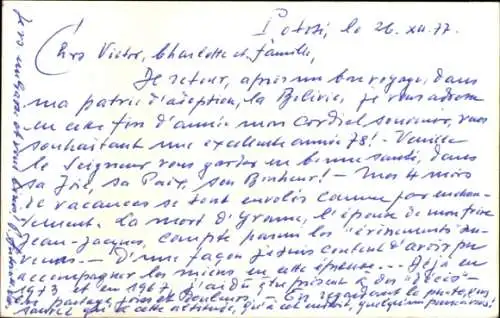 Potosi, le 26.XII.77.
Chers Victor, Charlotte et famille,
De retour, après un bon voyage, dans
ma patrie d'adoption, la Bolivie, je vous adresse
en cette fin d'année mon cordial souvenir, vous
souhaitant une excellente année 78! - Veuille
le Seigneur vous garder en bonne santé, dans
sa Joie, sa Paix, son Bonheur! - Mes 4 mois
de vacances se sont envolés comme par enchan-
tement. La mort d'Yvonne, l'épouse de mon frère
Jean-Jacques, compte parmi les "événements su-
venus - D'une façon je suis content d'avoir pu
accompagner les miens en cette épreuve... Déjà en
1973 et en 1967, j'ai dû être présent à des "décès" -
partage joies et douleurs. - En regardant le
qui de cette
Je vous embrasse et vous